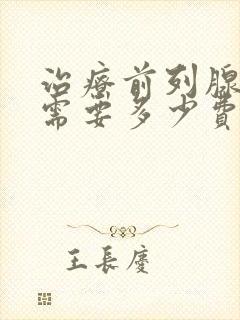 治療前列腺
需要多少費
王長慶